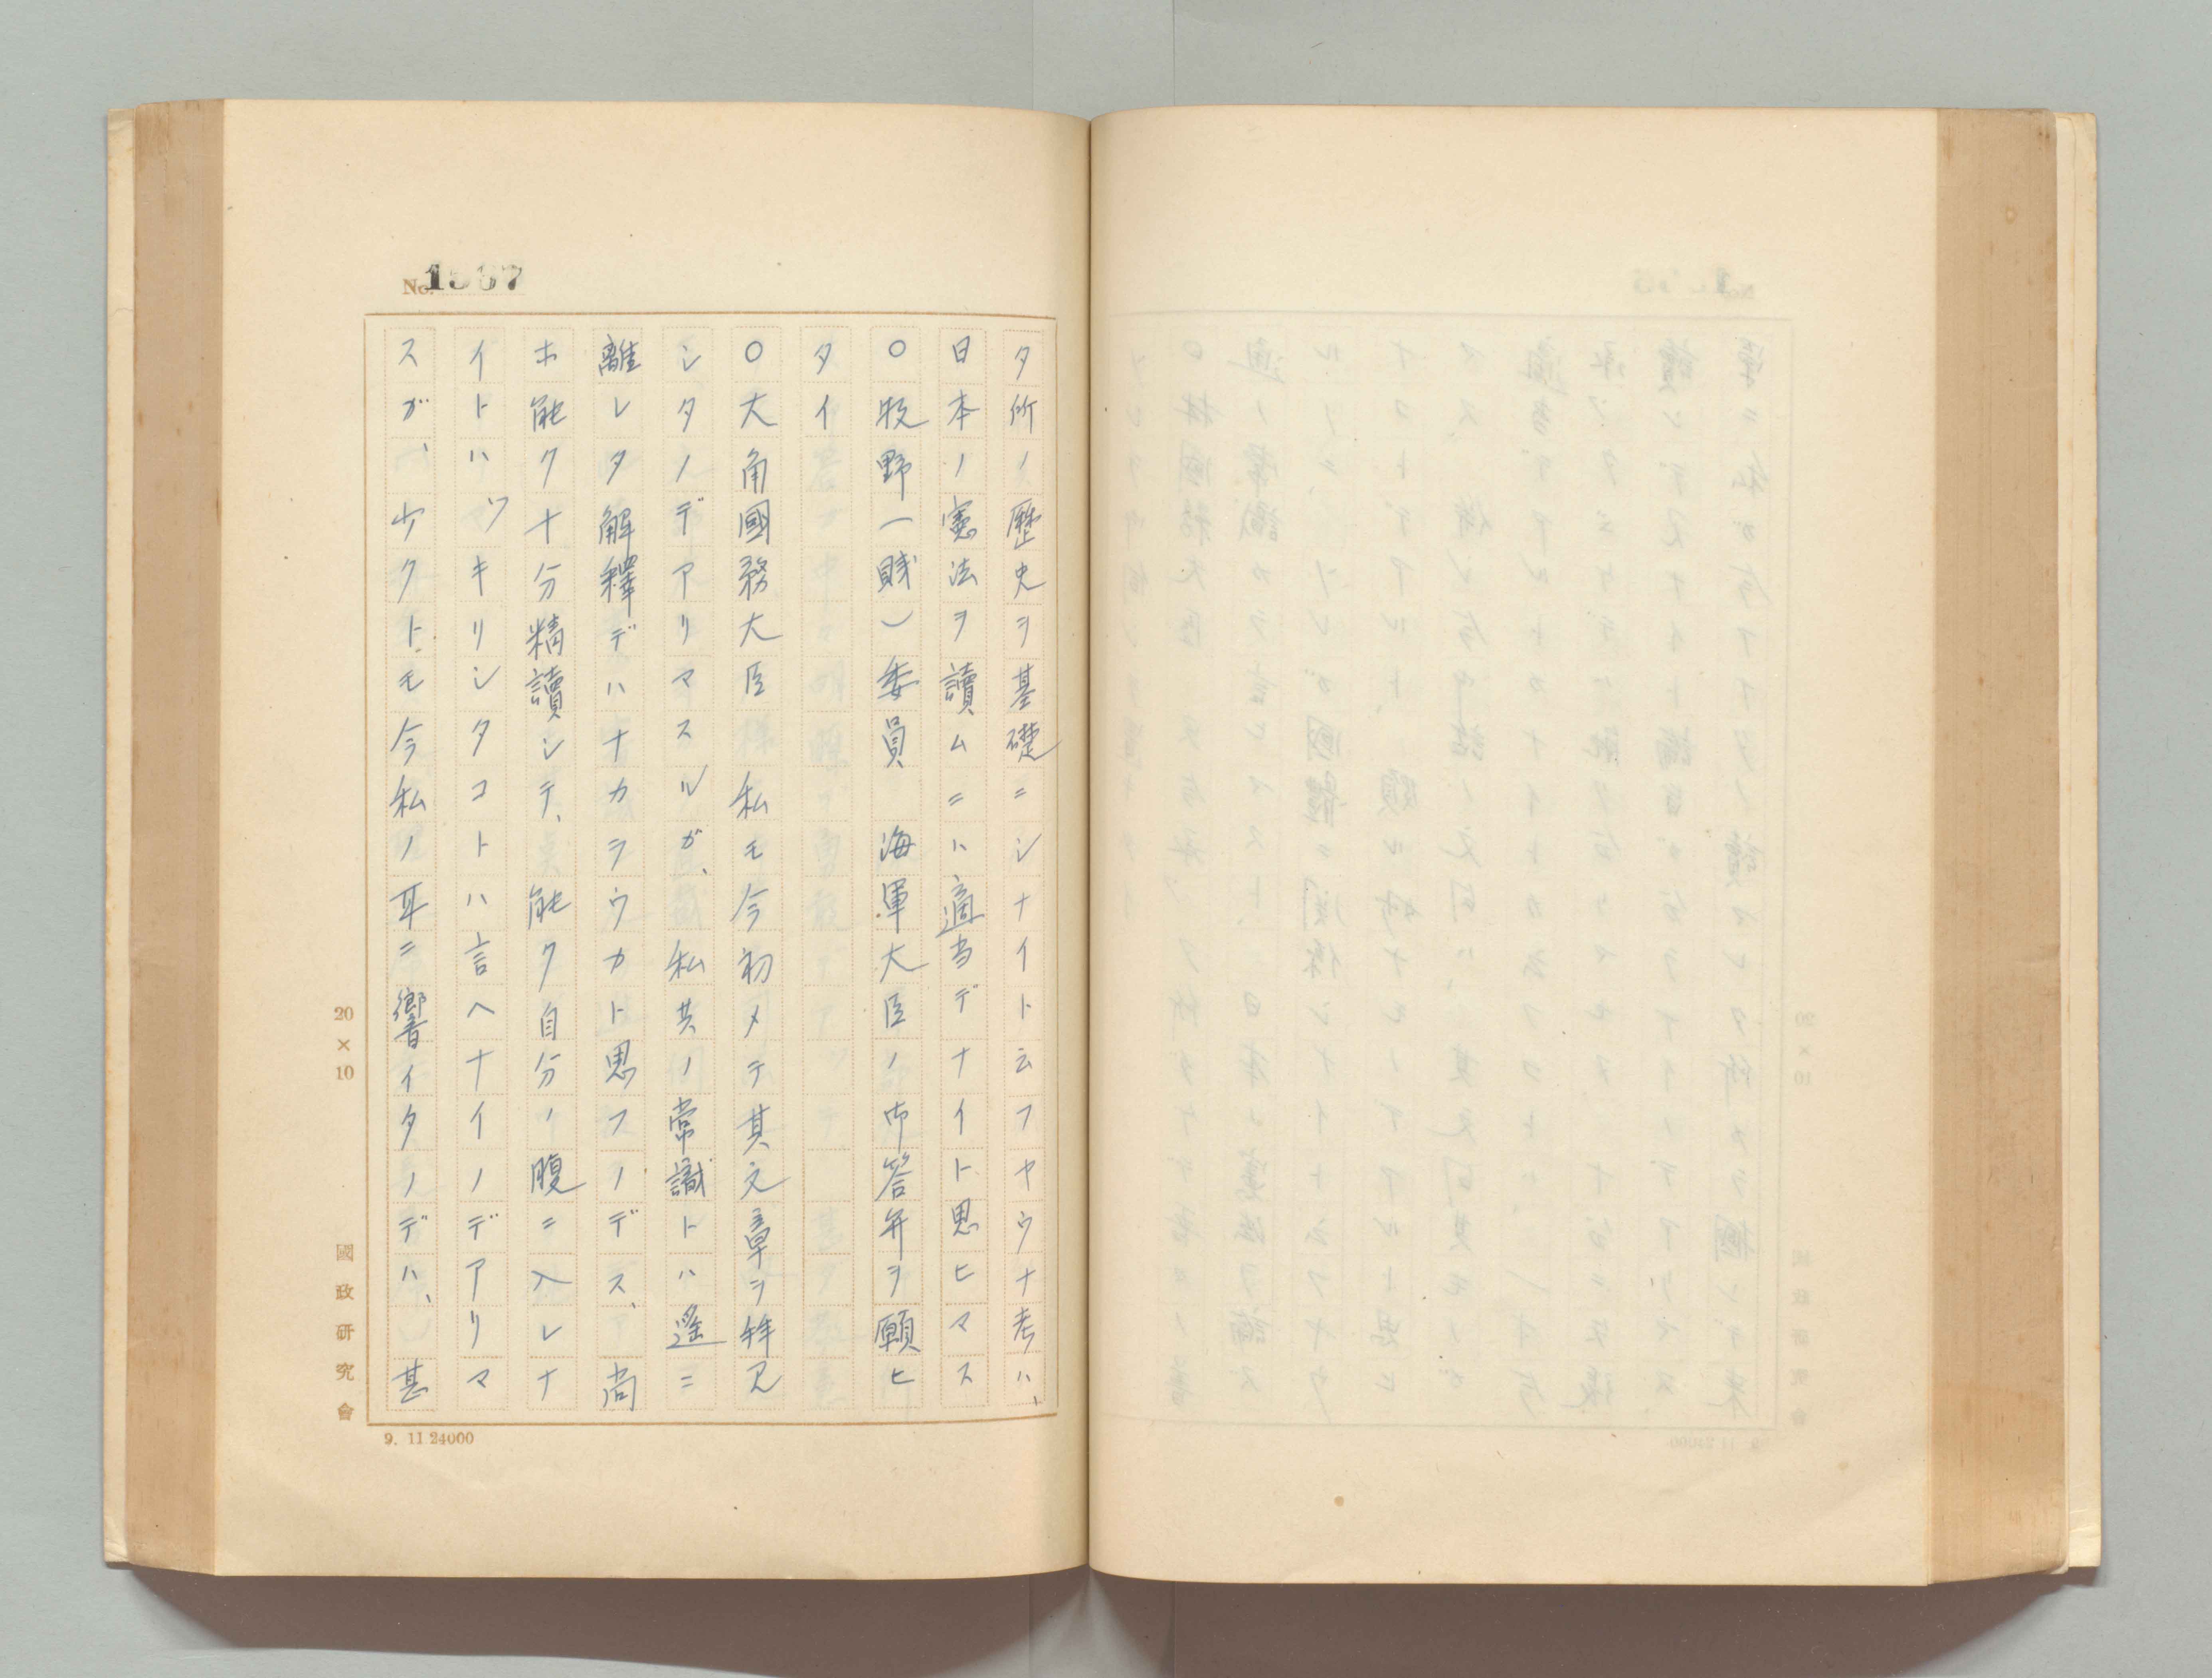 No. 1567
タ所ノ歴史ヲ基礎ニシナイト云フヤウナ考ハ、
日本ノ憲法ヲ讀ムニハ適当デナイト思ヒマス
〇牧野(賤)委員　海軍大臣ノ御答弁ヲ願ヒ
タイ
〇大角國務大臣　私モ今初メテ其文章ヲ拜見
シタノデアリマスルガ、私共ノ常識トハ遙ニ
離レタ解釋デハナカラウカト思フノデス、尚
ホ能ク十分精讀シテ、能ク自分ノ腹ニ入レナ
イトハツキリシタコトハ言ヘナイノデアリマ
スガ、少クトモ今私ノ耳ニ響イタノデハ、甚
20×10
國政研究會
9. 11 24000